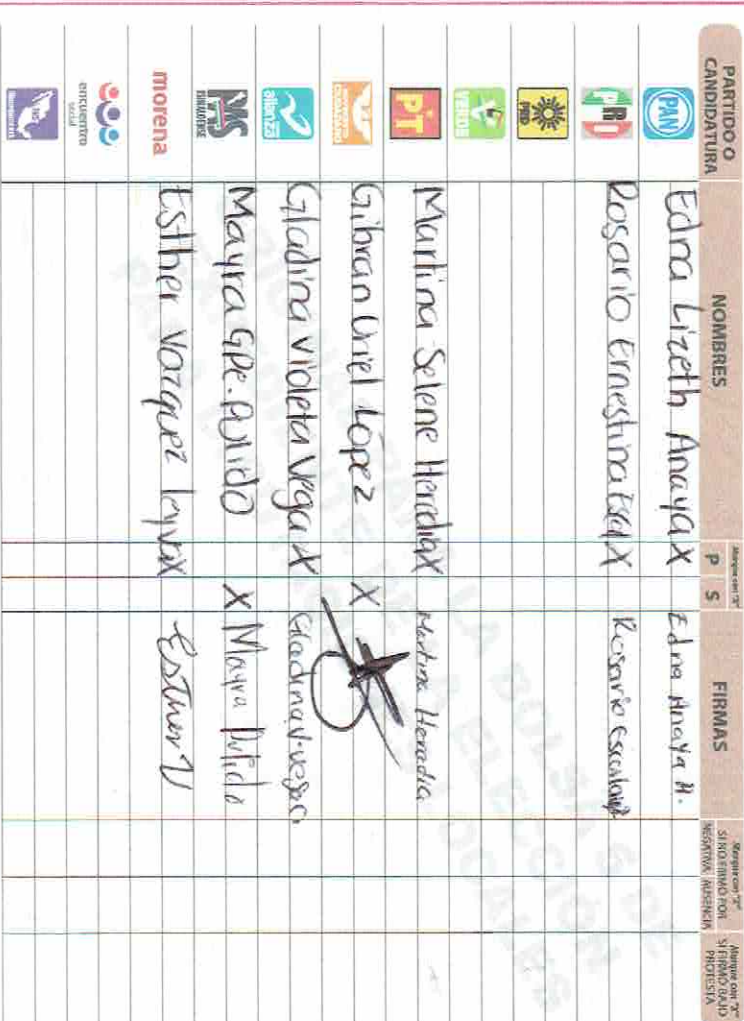 PARTIDO O CANDIDATURA
NOMBRES
Marque con "X"
P S
FIRMAS
Marque con "X" SI NO FIRMÓ POR
NEGATIVA AUSENCIA
Marque con "X" SI FIRMÓ BAJO PROTESTA
PAN Edna Lizeth Anaya X Edna Anaya M.
PRI Rosario Ernestina X Rosario
PRD
VERDE
PT Martina Selene Heredia X Martina Heredia
Gibran Uriel López X
alianza Gladina Violeta Vega X Gladina V. Vega
PAS SINALOENSE Mayra Gpe. Pulido X Mayra Pulido
morena Esther Vazquez leyva X Esther V
encuentro social